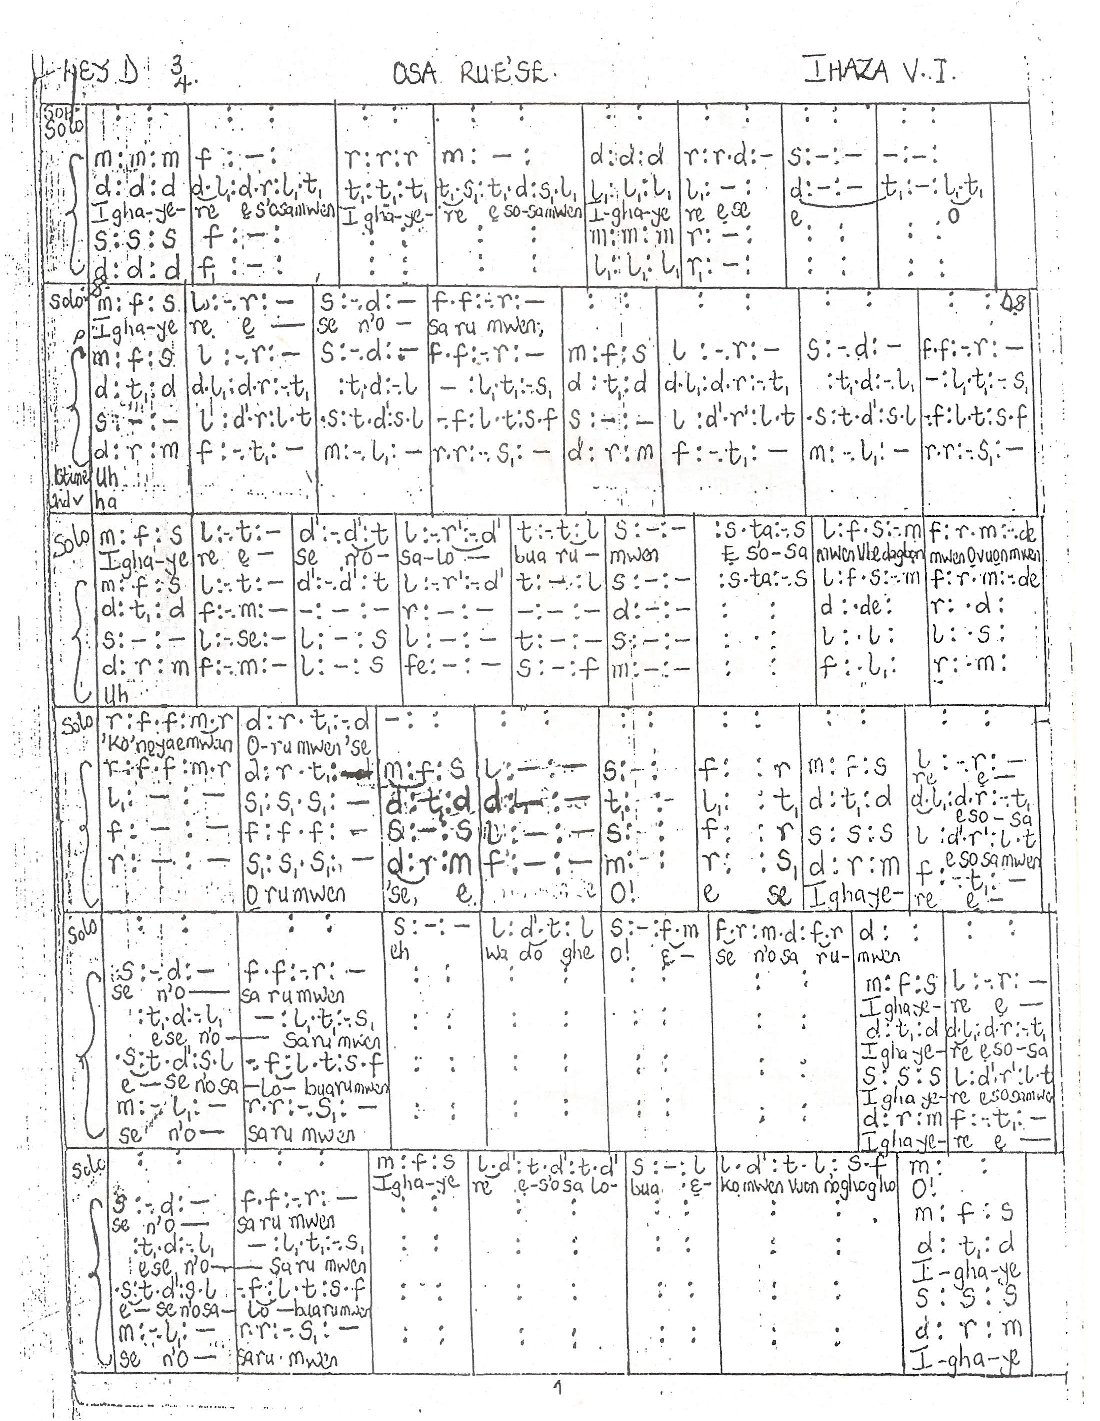 KEY D 3/4. OSA RU E'SE. IHAZA V. I.
Sop. : : : : : : : : : : : : : : : :
Solo
m : m : m f : – : r : r : r m : – : d : d : d r : r . d : – s : – : – – : – :
d : d : d d . l, : d . r : l, . t, t, : t, : t, t, . s, : t, . d : s, . l, l, : l, : l, l, : – : d : – : – t, : – : l, . t,
I gha-ye- re ẹ s'osamwen I gha-ye- re ẹ so-samwen I-gha-ye re ẹ se e O
s : s : s f : – : : : : : m : m : m r : – : : : : :
d : d : d f, : – : : : : : l, : l, : l, r, : – : : : : :
Solo m : f : s l : – . r : – s : – . d : – f . f : – . r : – : : : : : : : : DS
I gha-ye re ẹ — se n'o – sa ru mwen;
p m : f : s l : – . r : – s : – . d : – f . f : – . r : – m : f : s l : – . r : – s : – . d : – f . f : – . r : –
d : t, : d d . l, : d . r : – . t, : t, . d : – . l – : l, . t, : – . s, d : t, : d d . l, : d . r : – . t, : t, . d : – . l, – : l, . t, : – . s,
s : – : – l : d' . r : l . t . s : t . d' : s . l – . f : l . t : s . f s : – : – l : d' . r' : l . t . s : t . d' : s . l – . f : l . t : s . f
d : r : m f : – . t, : – m : – . l, : – r . r : – . s, : – d : r : m f : – . t, : – m : – . l, : – r . r : – . s, : –
1st time Uh
2nd ✓ ha
Solo m : f : s l : – . t : – d' : – . d' : t l : – . r' : – . d' t : – . t : l s : – : – : s . ta : – . s l . f . s : – . m f : r . m : – . de
I gha-ye re ẹ – se n'o – sa-lo – bua ru – mwen Ẹ s'o-sa mwen Vbe dagbon mwen Ọvuọnmwen
m : f : s l : – . t : – d' : – . d' : t l : – . r' : – . d' t : – . : l s : – : – : s . ta : – . s l . f . s : – . m f : r . m : – . de
d : t, : d f : – . m : – – : – : – r : – : – – : – : – d : – : – : : d : . de : r : . d :
s : – : – l : – . se : – l : – : s l : – : – t : – : – s : – : – : : l : . l : l : . s :
d : r : m f : – . m : – l : – : s fe : – : – s : – : f m : – : – : : f : . l, : r : – . m :
Uh
Solo r : f . f : m . r d : r . t, : – . d – : : : : : : : : : : : :
'Ko'nọyaemwan O-ru mwen 'se
r : f . f : m . r d : r . t, : – m : f : s l : – : – s : – : f : : r m : f : s l : – . r : –
re ẹ —
l, : – : – s, . s, . s, : – d : t, : d d . l, – : – t, : – : l, : : t, d : t, : d d . l, : d . r : – . t,
ẹ so-sa
f : – : – f . f . f : – s : – : s l : – : – s : – : f : : r s : s : s l : d' . r' : l . t
ẹ so samwen
r : – : – s, . s, . s, : – d : r : m f : – : – m : – : r : : s, d : r : m f : – . t, : –
O rumwen 'se, e O! e se I ghaye- re ẹ –
Solo : : : : s : – : – l : d' . t : l s : – : f . m f . r : m . d : f . r d : : : :
eh wa do ghe O! Ẹ – se n'o sa ru- mwen
s : – . d : – f . f : – . r : – : : : : : : : : m : f : s l : – . r : –
se n'o — sa ru mwen I ghaye- re ẹ —
: t, . d : – . l, – : l, . t, : – . s, : : : : : : : : d : t, : d d . l, : d . r : – . t,
ẹse no — sa ru mwen I gha ye- re ẹ so-sa
. s : t . d' : s . l – . f : l . t : s . f : : : : : : : : s : s : s l : d' . r' : l . t
ẹ — se no sa – lo – bua ru mwen I gha ye- re ẹ so samwen
m : – . l, : – r . r : – . s, : – : : : : : : : : d : r : m f : – . t, : –
se n'o — sa ru mwen I ghaye- re ẹ —
Solo : : : : m : f : s l . d' : t . d' : t . d' s : – : l l . d' : t . l : s . f m : :
I gha-ye re ẹ-s'o sa lo- bua Ẹ- ko mwen vuon no ghogho O!
s : – . d : – f . f : – . r : – : : : : : : : : m : f : s
se n'o — sa ru mwen
: t, . d : – . l, – : l, . t, : – . s, : : : : : : : : d : t, : d
ẹse, n'o — sa ru mwen I-gha-ye
. s : t . d' : s . l – . f : l . t : s . f : : : : : : : : s : s : s
ẹ — se n'o sa – lo – bua ru mwen
m : – . l, : – r . r : – . s, : – : : : : : : : : d : r : m
se n'o — sa ru . mwen I-gha-ye
1